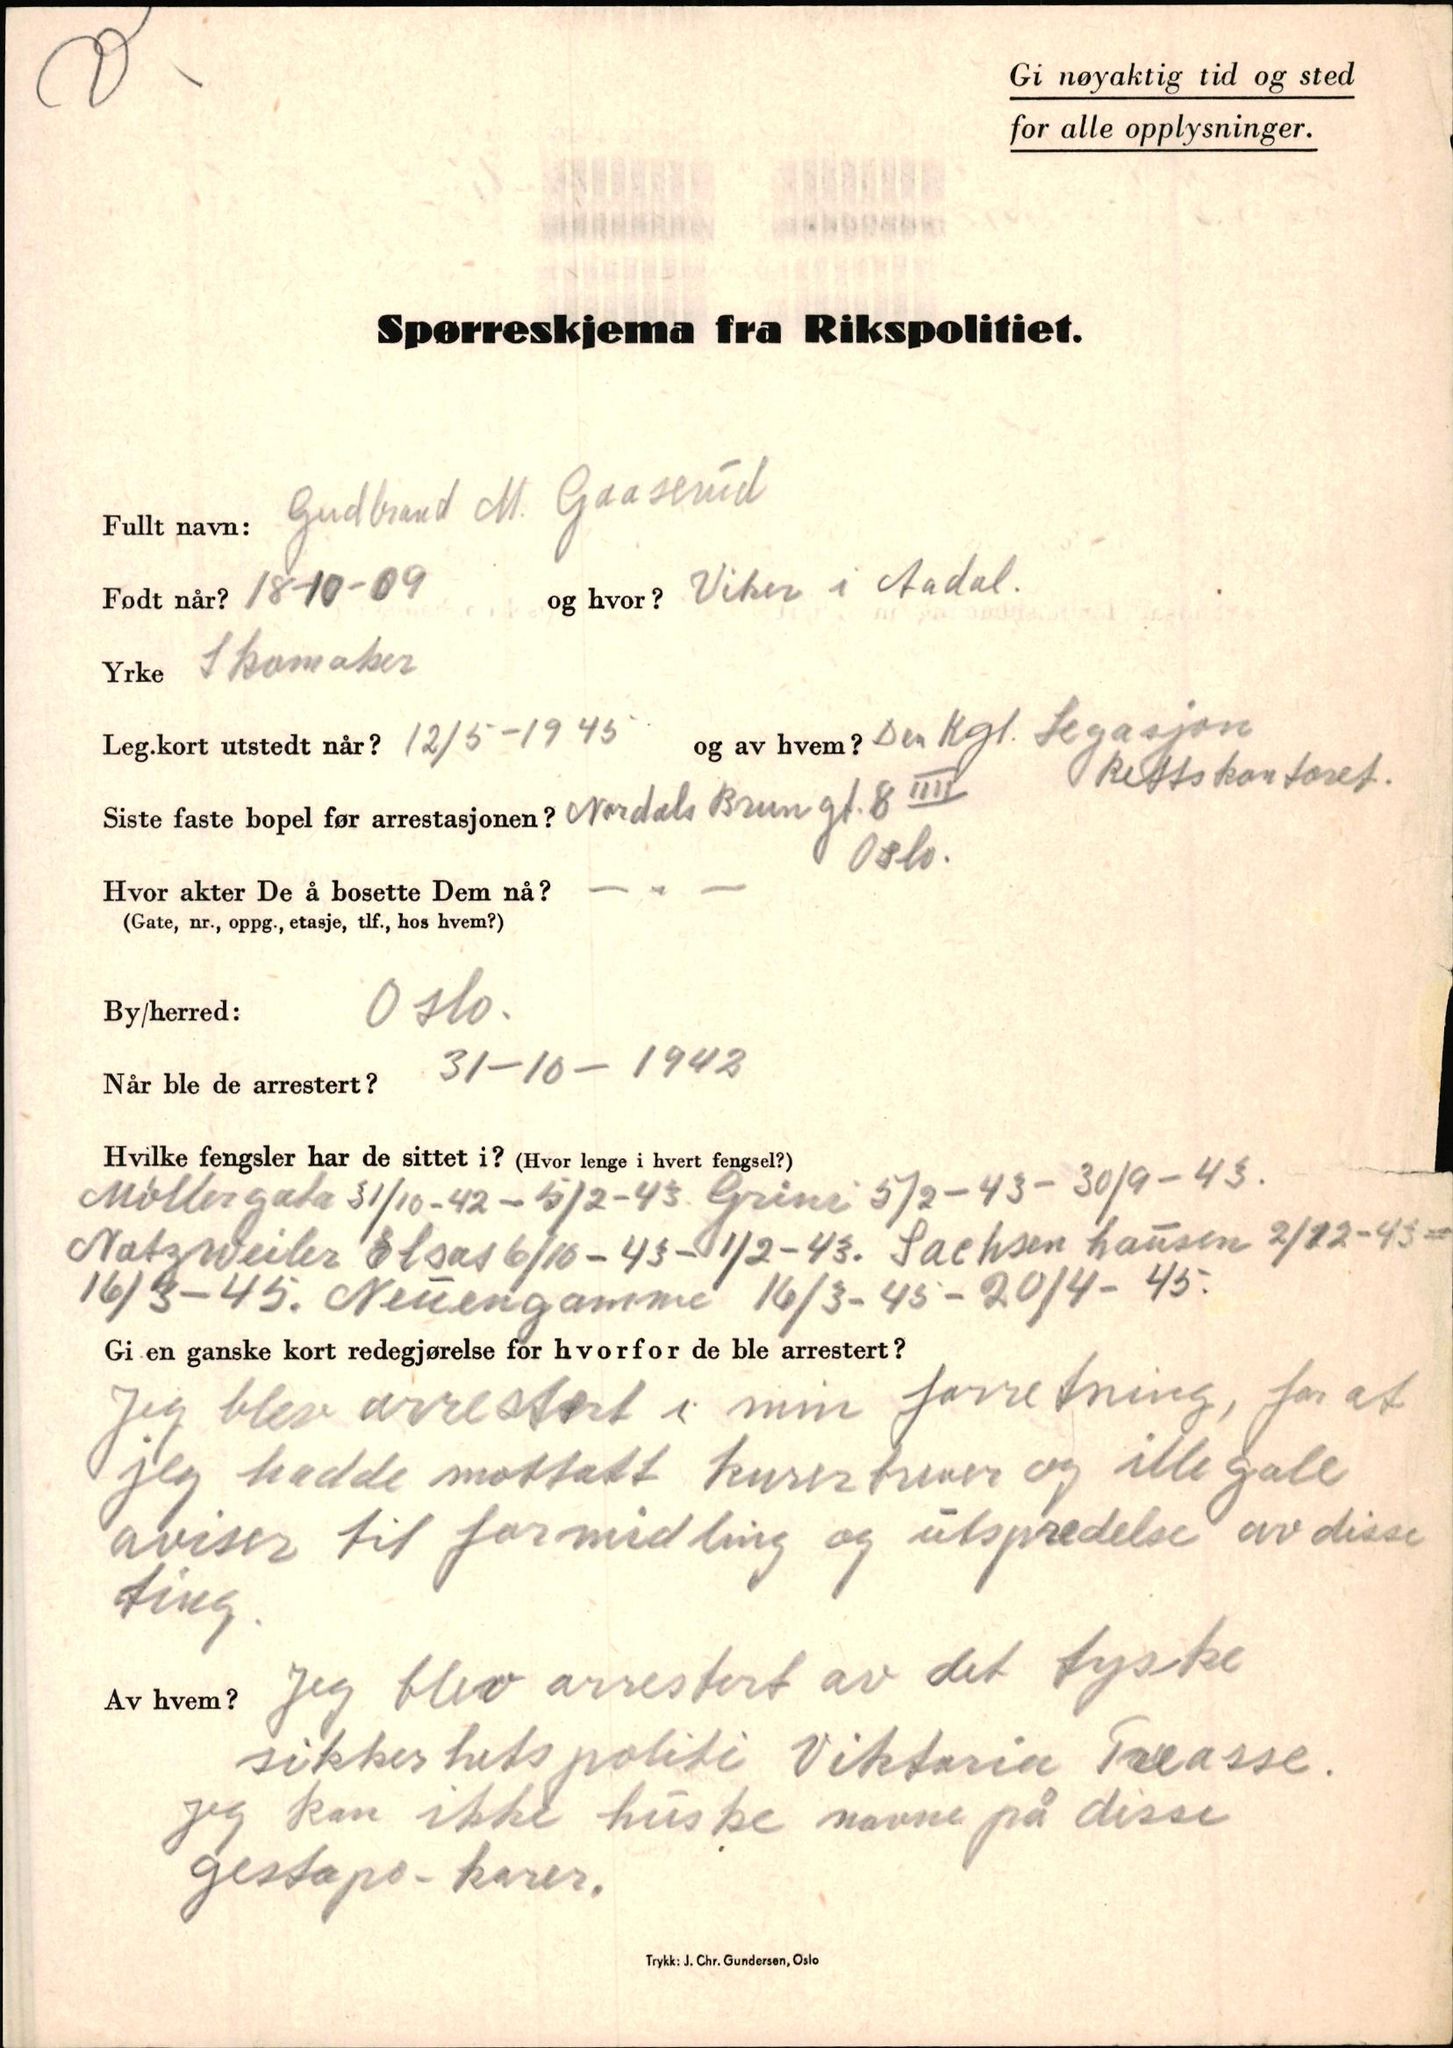 Gi nøyaktig tid og sted
for alle opplysninger.
Spørreskjema fra Rikspolitiet.
Fullt navn: Gudbrand M. Gaaserud
Født når? 18-10-09 og hvor? Viker i Aadal.
Yrke Skomaker
Leg.kort utstedt når? 12/5-1945 og av hvem? Den Kgl. Legasjon
Rettskontoret.
Siste faste bopel før arrestasjonen? Nordals Brun gt. 8 IIII
Oslo.
Hvor akter De å bosette Dem nå? — " —
(Gate, nr., oppg., etasje, tlf., hos hvem?)
By/herred: Oslo.
Når ble de arrestert? 31-10-1942
Hvilke fengsler har de sittet i? (Hvor lenge i hvert fengsel?)
Möllergata 31/10-42-5/2-43 Grini 5/2-43-30/9-43.
Natzweiler Elsas 6/10-43-1/2-43. Sachsenhausen 2/12-43=
16/3-45. Neuengamme 16/3-45-20/4-45.
Gi en ganske kort redegjørelse for hvorfor de ble arrestert?
Jeg blev arrestert i min forretning, for at
jeg hadde mottatt kurerbrever og illegale
aviser til formidling og utspredelse av disse
ting.
Av hvem? Jeg blev arrestert av det tyske
sikkerhetspoliti Viktoria Trasse.
jeg kan ikke huske navne på disse
gestapo-karer.
Trykk: J. Chr. Gundersen, Oslo